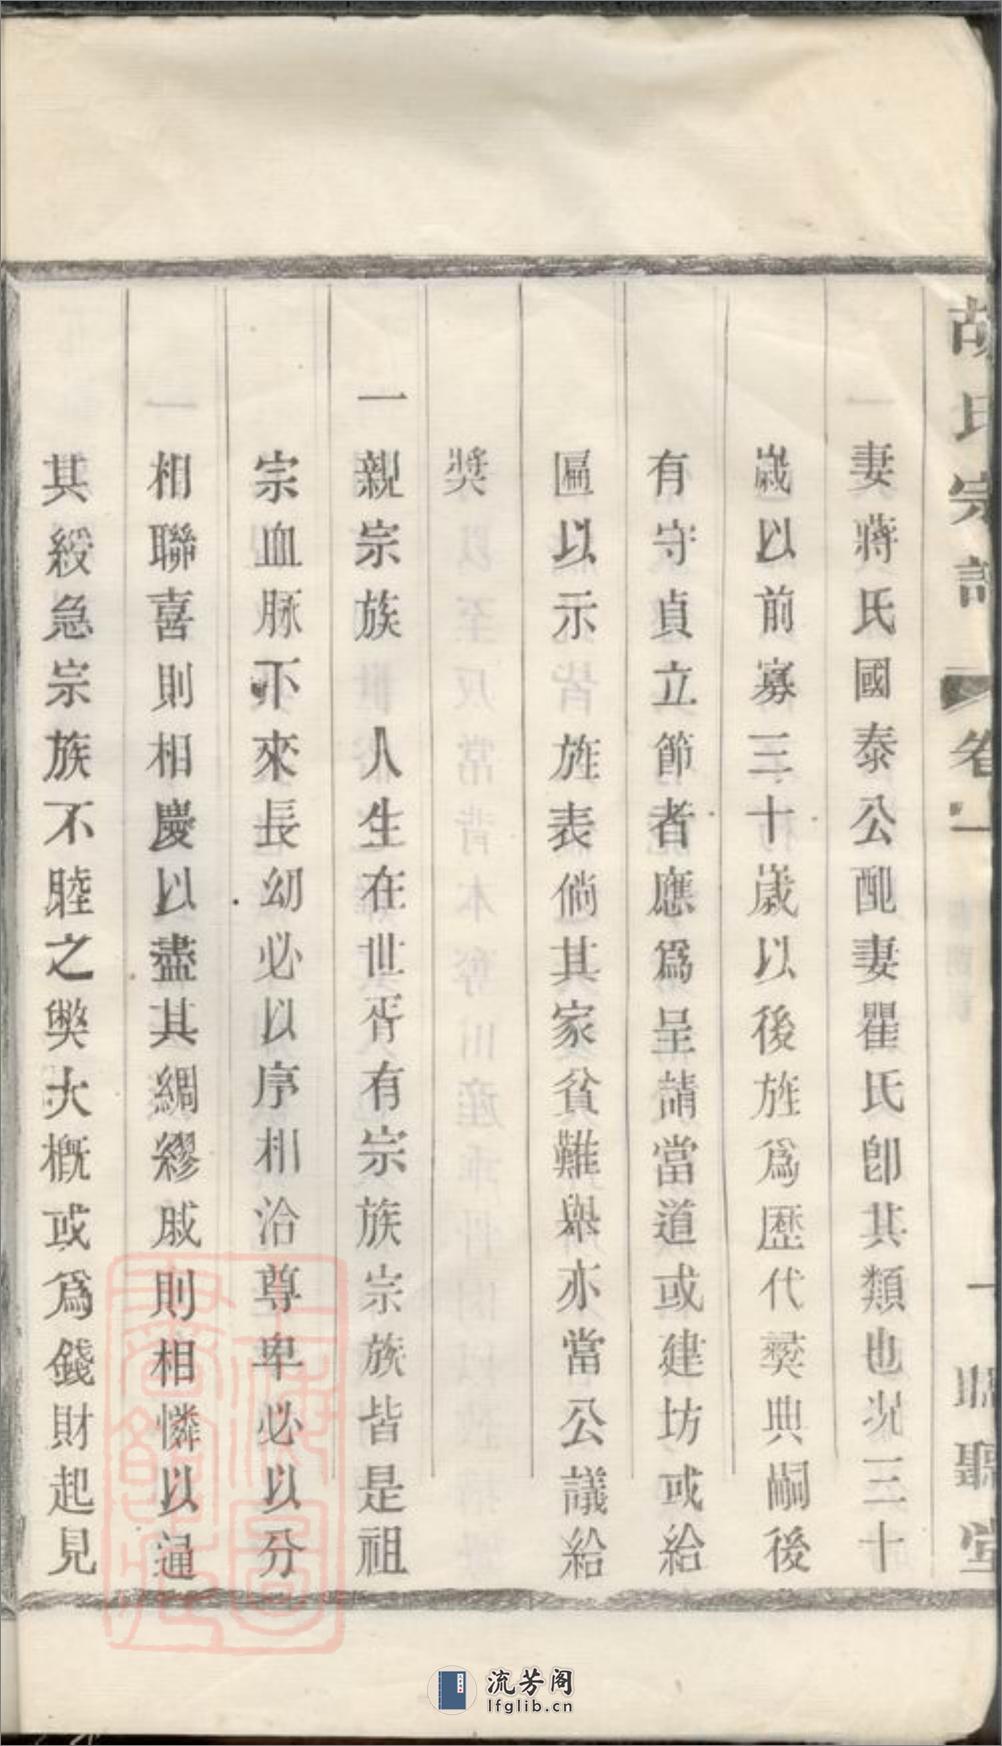 胡氏宗譜
卷一
一
聽堂
妻蔣氏國泰公配妻瞿氏卽其類也况三十
歲以前寡三十歲以後旌爲歷代獎典嗣後
有守貞立節者應爲呈請當道或建坊或給
匾以示旌表倘其家貧難舉亦當公議給
獎
一親宗族 人生在世胥有宗族宗族皆是祖
宗血脉下來長幼必以序相洽尊卑必以分
相聯喜則相慶以盡其綢繆戚則相憐以通
其緩急宗族不睦之獘大槪或爲錢財起見
流芳阁
lfglib.cn